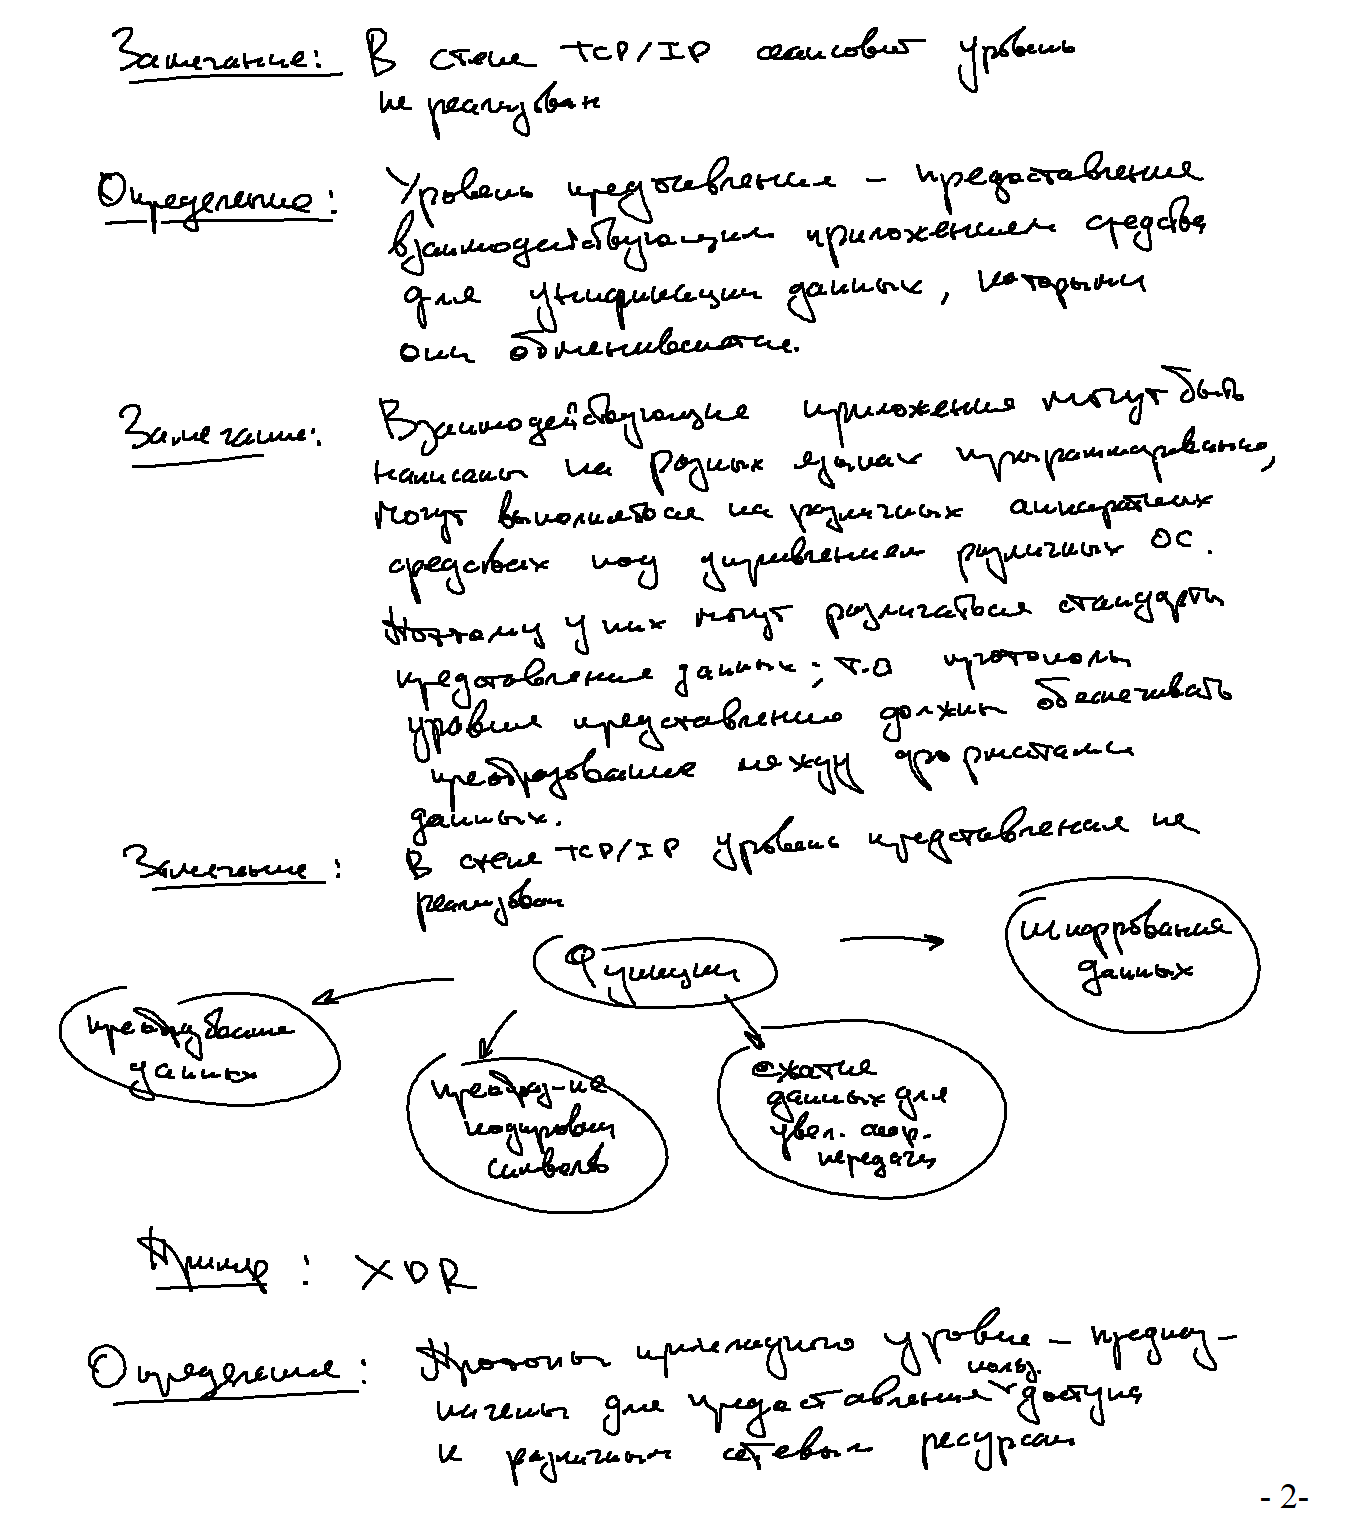 Замечание: В стеке TCP/IP сеансовый уровень
не реализован
Определение: Уровень представления – предоставление
взаимодействующим приложениям средства
для унификации данных, которыми
они обмениваются.
Замечание: Взаимодействующие приложения могут быть
написаны на разных языках программирования,
могут выполняться на различных аппаратных
средствах под управлением различных ОС.
Поэтому у них могут различаться стандарты
представления данных; т.о протоколы
уровня представления должны обеспечивать
преобразование между форматами
данных.
Замечание: В стеке TCP/IP уровень представления не
реализован
Функции
шифрования
данных
преобразование
данных
преобраз-ие
кодировки
символов
сжатие
данных для
увел. скор.
передачи
Пример: XDR
Определение: Протоколы прикладного уровня – предназ-
начены для предоставления польз. доступа
к различным сетевым ресурсам
- 2-